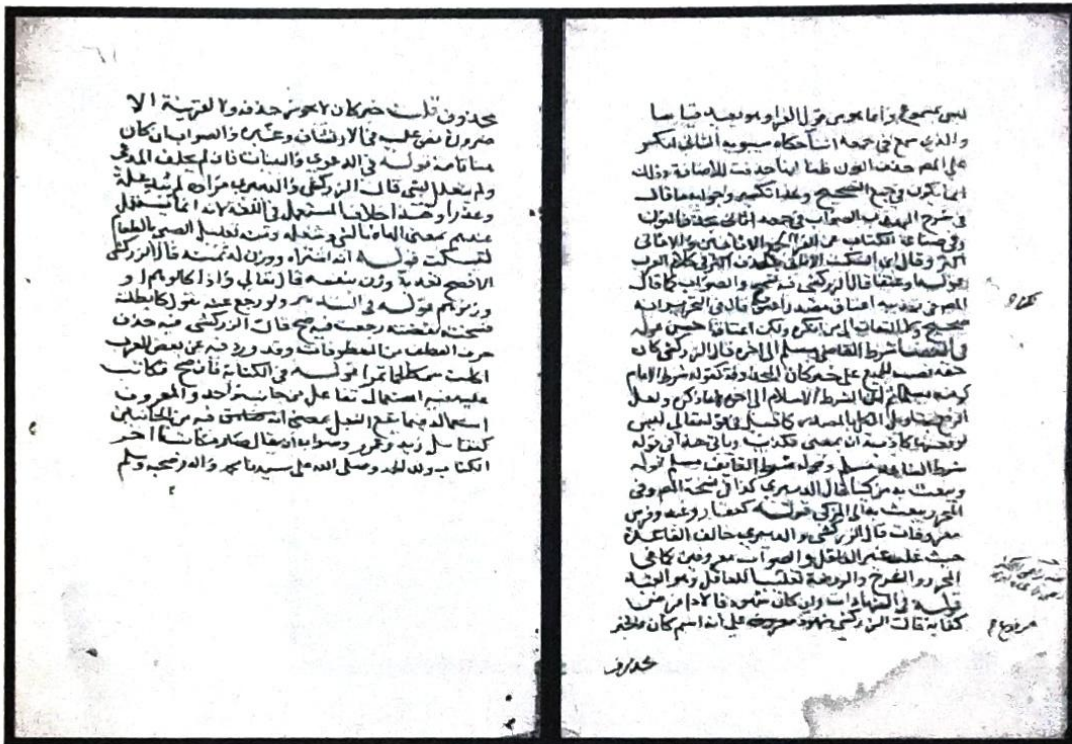 ليس بمسموع وإنما هو من قول الفراء وهو بعيد قياسا
والذي سمع في جمعه اثنا حكاه سيبويه الثاني انكسر
على المص حذف النون ظنا انها حذفت للاضافة وذلك
انما يكون في جمع الصحيح وهذا تكسير وجوابه ما قال
في شرح المهذب الصواب في جمعه اثاني بحذف النون
وفي صناعة الكتاب عن الاثانين والاثاني
اكثر وقال ابن السكيت الاثاني بحذف اكثر في كلام العرب
قوله وعتقا قال الزركشي فيه تجوز والصواب كما قال
المص في تهذيبه اعتاق مصدر اعتق قال في التحرير انه
صحيح ولا التفات الى من انكره ولكن اعتاقا احسن قوله
في القضا شرط القاضي مسلم الى اخره قال الزركشي كان
حقه نصب الجميع على خبر كان المحذوفة كقوله شرط الامام
كونه مسلما لان الشرط الاسلام الى اخره ولعل
كاذبة ان بمعنى تكذيب وياتي هذا في قوله
شرط الشاهد مسلم وقوله شرط القايف مسلم قوله
وبعث به مزكيا قال الدميري كذا في نسخة المص وفي
المحرر يبعث به الى المزكي قوله
معروفات قال الزركشي والدميري خالف القاعدة
حيث غلب غير العاقل والصواب معروفين كما في
المحرر والشرح والروضة تغليبا للعاقل
قوله في الشهادات وان كان شهود فالادا فرض
كفاية قال الزركشي شهود مرفوع على انه اسم كان والخبر
محذوف
مرفوع
محذوف قلت خبر كان لا يجوز حذفه ولا لقرينة الا
ضرورة نص عليه في الارتشاف وغيره والصواب ان كان
هنا تامة قوله في الدعوى والبينات فان لم يحلف المدعي
ولم يتعلل بشي قال الزركشي والدميري مراده لم يبد علة
وعذرا وهذا خلاف المستعمل في اللغة لانه انما يستعمل
عندهم بمعنى الهاه بالشي وشغله ومنه تعليل الصبي بالطعام
ليسكت قوله انه اشتراه ووزن له ثمنه قال الزركشي
الافصح تعديه وزن بنفسه قال تعالى واذا كالوهم او
وزنوهم قوله في التدبير ولو رجع عنه بقول كابطلته
فسخته نقضته رجعت فيه صح قال الزركشي فيه حذف
حرف العطف من المعطوفات وقد ورد فيه عن بعض العرب
اكلت سمكا لحما تمرا قوله في الكتابة فان صح فكاتب
عليه فيه استعمال تفاعل من جانب واحد والمعروف
استعماله فيما يقع الفعل بمعنى انه فيه من الجانبين
كتقاتل زيد وعمرو وصوابه ان يقال اخر
الكتاب ولله الحمد وصلى الله على سيدنا محمد واله وصحبه وسلم